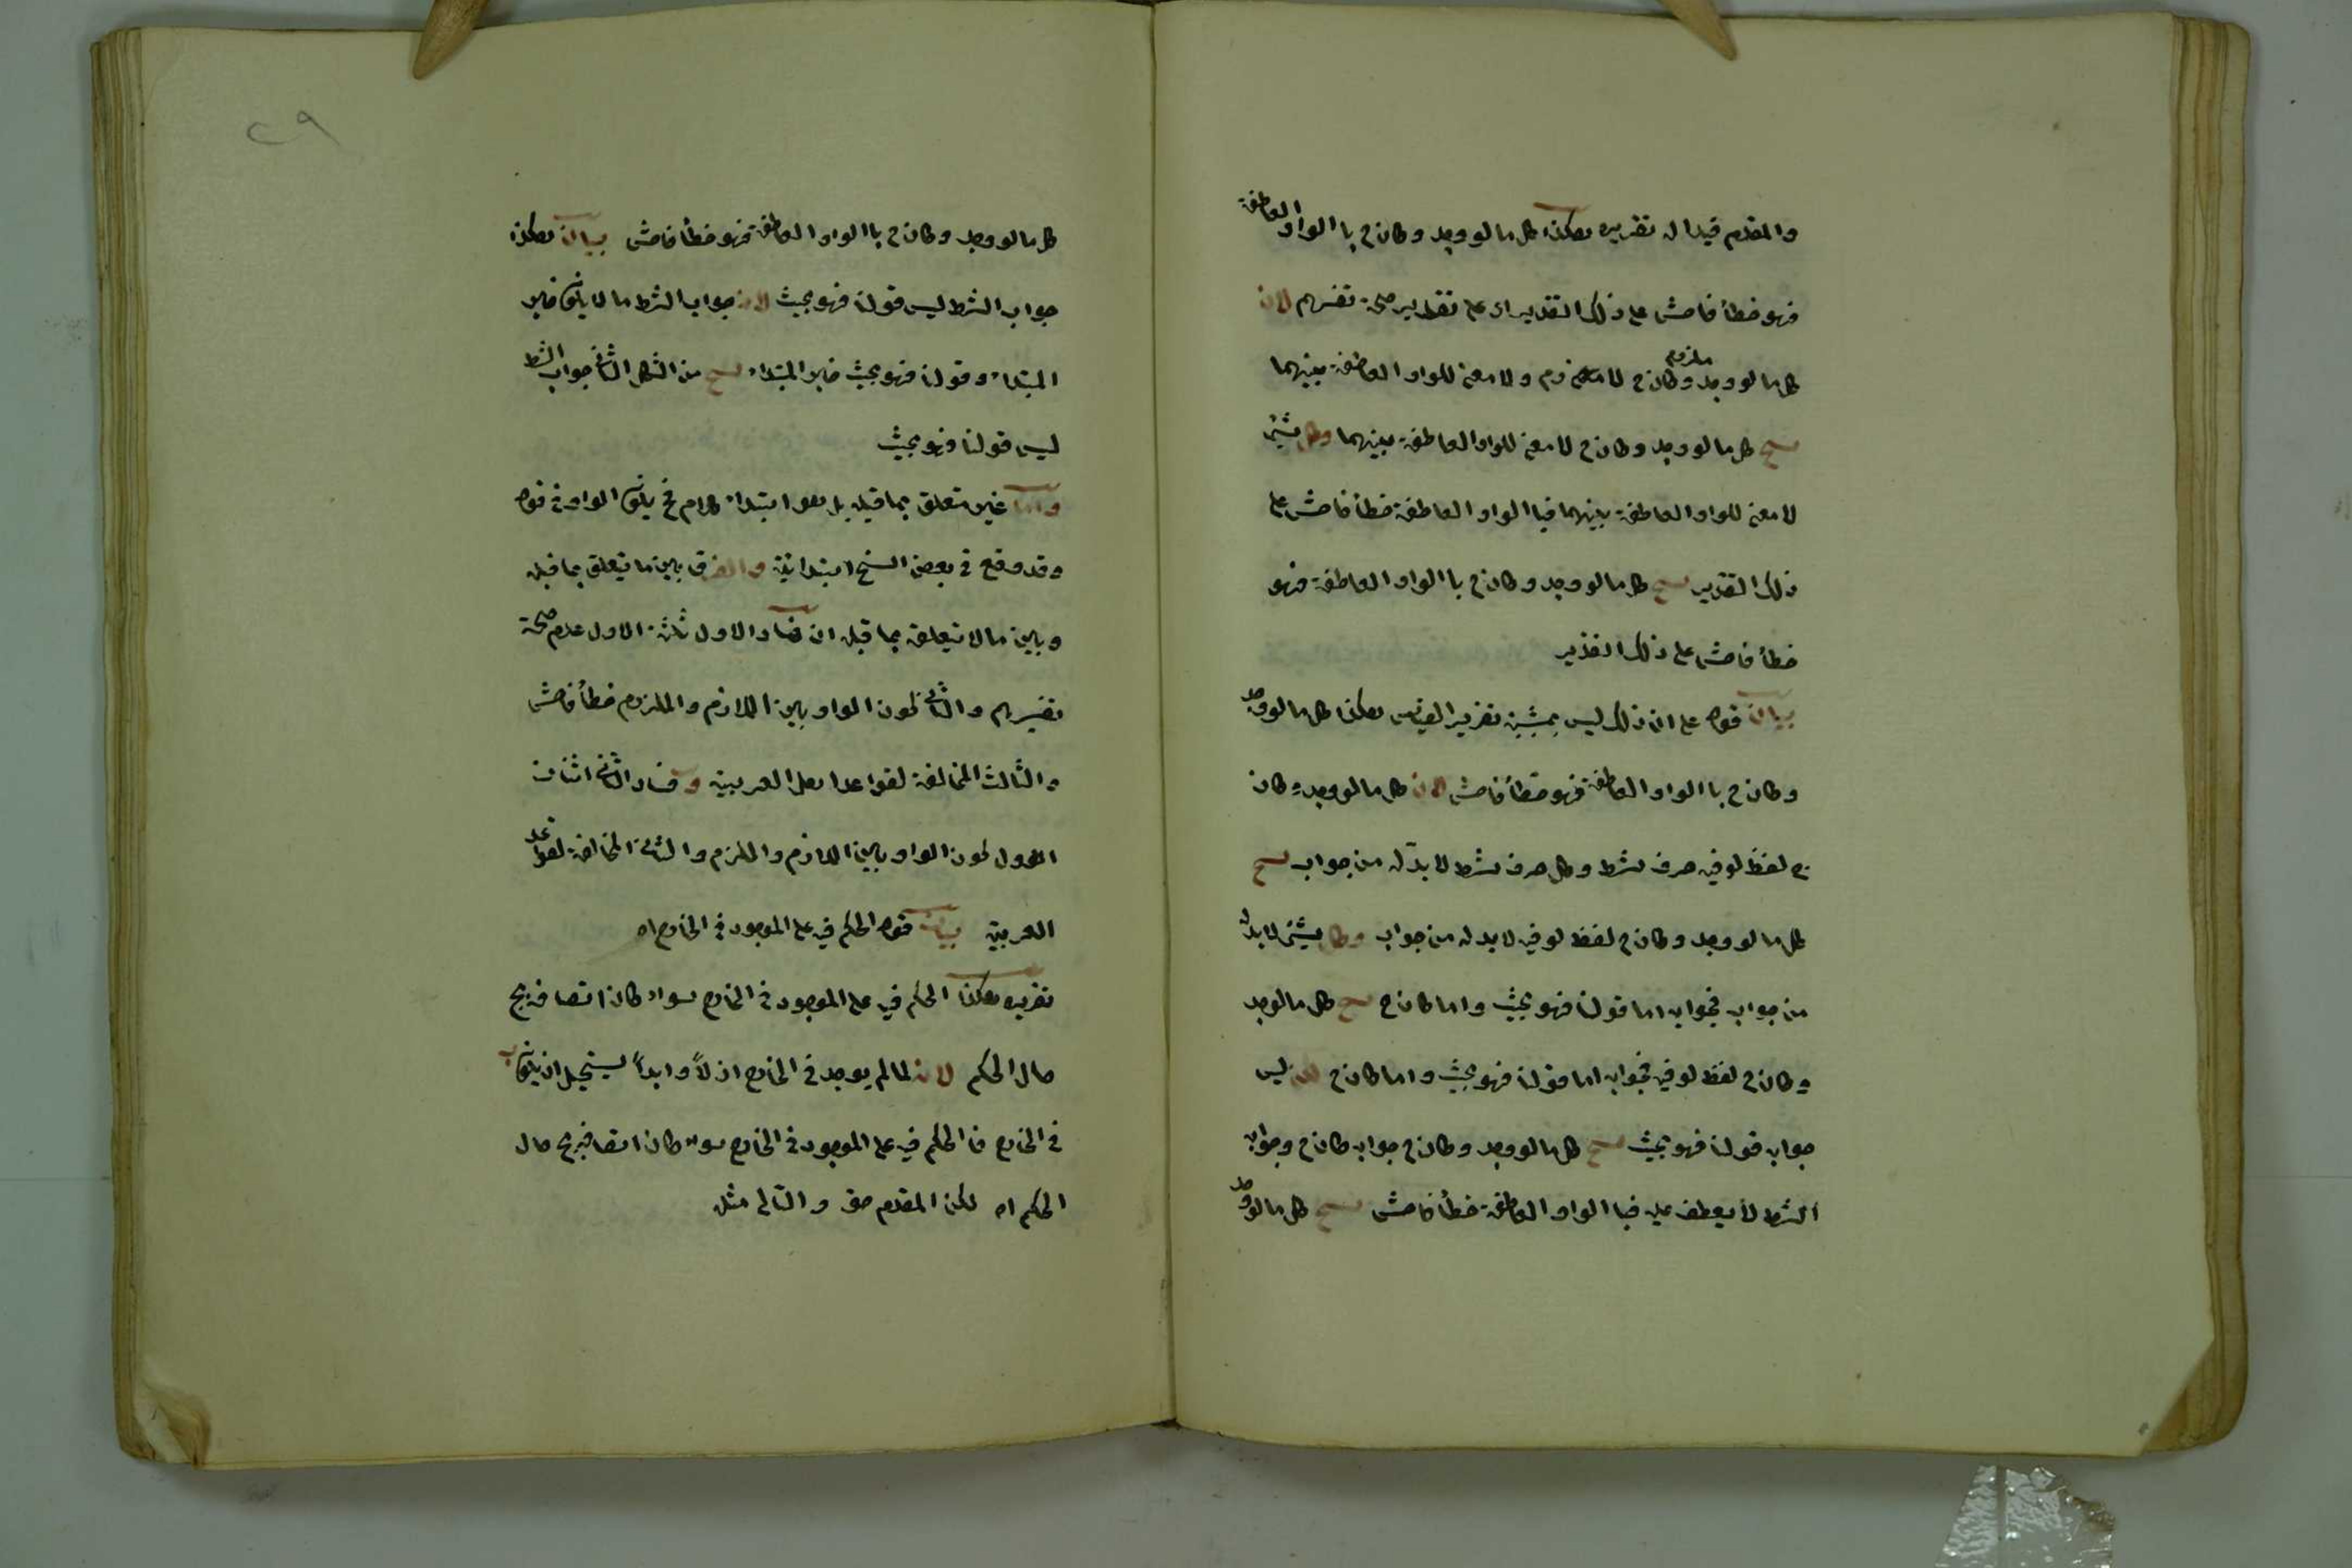 والمقدم قيدا له تقريره هكذا كل ما لو وجد وكان ج با الواو العاطفة
فهو خطأ فاحش على ذلك التقدير اى على تقدير صحة تفسيرهم لان
كل ما لو وجد ملزوم وكان ج لازم ولا معنى للواو العاطفة بينهما
ينتج كل ما لو وجد وكان ج لا معنى للواو العاطفة بينهما وكل شيئ
لا معنى للواو العاطفة بينهما فبا الواو العاطفة خطأ فاحش على
ذلك التقدير ينتج كل ما لو وجد وكان ج با الواو العاطفة فهو
خطأ فاحش على ذلك التقدير
بيان قوله على ان ذلك ليس بمثبت تقرير القياس هكذا كل ما لو وجد
وكان ج با الواو العاطفة فهو خطأ فاحش لان كل ما لو وجد وكان
ج لفظ لو فيه حرف شرط وكل حرف شرط لا بد له من جواب ينتج
كل ما لو وجد وكان ج لفظ لو فيه لا بد له من جواب وكل شيئ لا بد له
من جواب فجوابه اما قولنا فهو بحيث واما كان ج ينتج كل ما لو وجد
وكان ج لفظ لو فيه فجوابه اما قولنا فهو بحيث واما كان ج ليس
جوابه قولنا فهو بحيث ينتج كل ما لو وجد وكان ج جوابه كان ج وجواب
الشرط لا يعطف عليه فبا الواو العاطفة خطأ فاحش ينتج كل ما لو وجد
٢٩
كل ما لو وجد وكان ج با الواو العاطفة فهو خطأ فاحش بيان هكذا
جواب الشرط ليس قولنا فهو بحيث لان جواب الشرط ما لا يكون خبر
المبتداء وقولنا فهو بحيث خبر المبتداء ينتج من الشكل الثانى جواب الشرط
ليس قولنا فهو بحيث
واما غير متعلق بما قبله بل هو ابتداء كلام فح يكون الواو فى قوله
وقد وقع فى بعض النسخ ابتدائية والفرق بين ما يتعلق بما قبله
وبين ما لا يتعلق بما قبله ان فساد الاول ثلثة الاول عدم صحة
تفسيرهم والثانى كون الواو بين اللازم والملزوم خطأ فاحش
والثالث المخالفة لقواعد اهل العربية وفساد الثانى اثنان
الاول كون الواو بين اللازم والملزم والثانى المخالفة لقواعد
العربية بيان قوله الحكم فيه على الموجود فى الخارج اه
تقريره هكذا الحكم فيه على الموجود فى الخارج سواء كان اتصافه بج
حال الحكم لان لما لم يوجد فى الخارج ازلاً وابداً يستحيل ان يكون ب
فى الخارج فا الحكم فيه على الموجود فى الخارج سواء كان اتصافه بج حال
الحكم اه لكن المقدم حق والتالى مثله